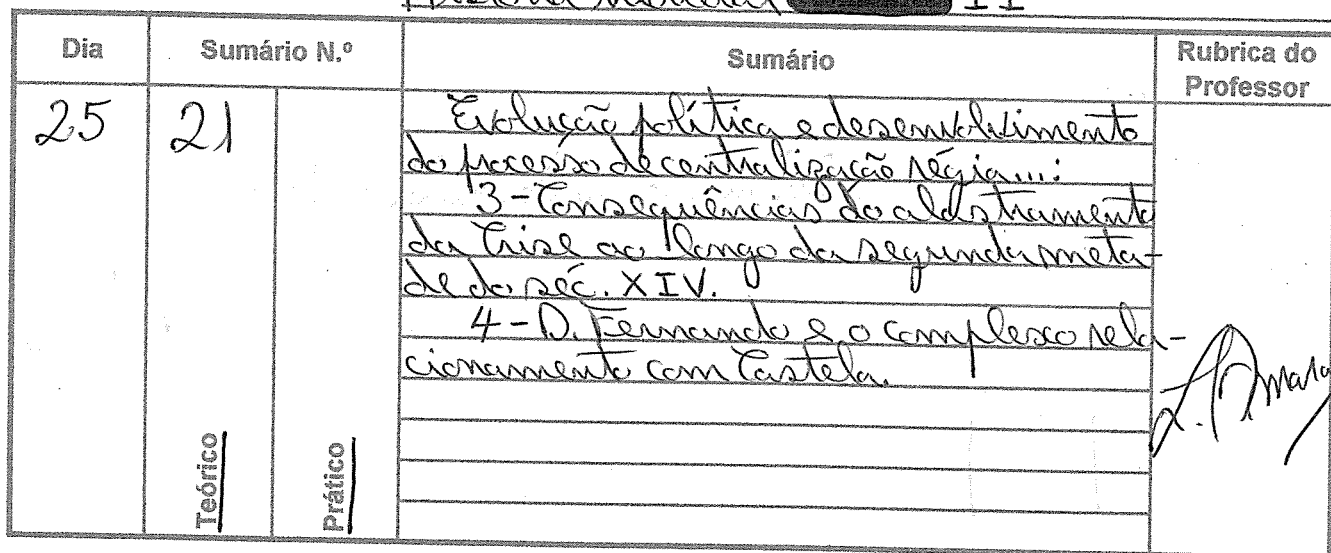 II
Dia
Sumário N.º
Sumário
Rubrica do
Professor
25
21
Evolução política e desenvolvimento
do processo de centralização régia...:
3 - Consequências do alastramento
da Crise ao longo da segunda meta-
de do séc. XIV.
4 - D. Fernando e o complexo rela-
cionamento com Castela.
Teórico
Prático